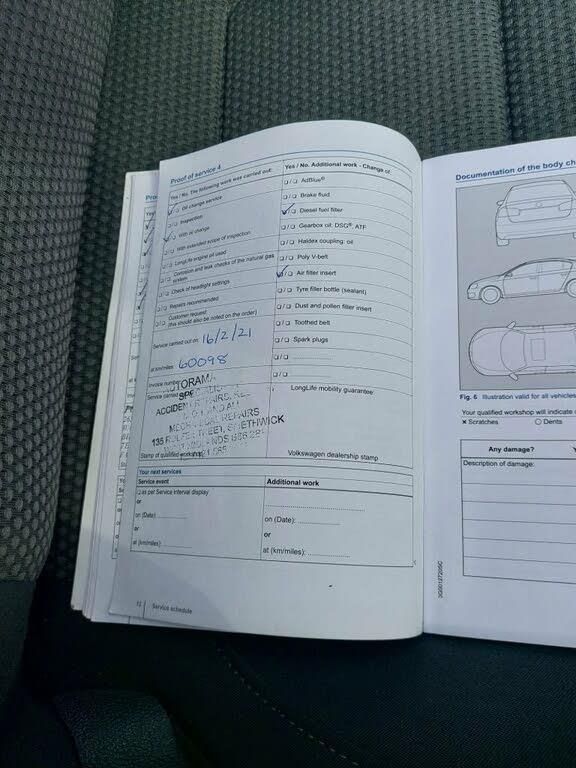 Proof of service 4
Yes / No. The following work was carried out:
❑/❑ Oil change service
❑/❑ Inspection
With oil change
❑/❑ With extended scope of inspection
❑/❑ LongLife engine oil used
❑/❑ Corrosion and leak checks of the natural gas
system
❑/❑ Check of headlight settings
❑/❑ Repairs recommended
❑/❑ Customer request
(this should also be noted on the order)
Service carried out on: 16/2/21
at km/miles: 60098
Invoice number
Service carried
AUTORAMA
ACCIDENT REPAIRS,
AND ALL
MECHANICAL REPAIRS
135 STREET, SMETHWICK
Stamp of qualified workshop
Yes / No. Additional work - Change of:
❑/❑ AdBlue®
❑/❑ Brake fluid
❑/❑ Diesel fuel filter
❑/❑ Gearbox oil: DSG®, ATF
❑/❑ Haldex coupling: oil
❑/❑ Poly V-belt
❑/❑ Air filter insert
❑/❑ Tyre filler bottle (sealant)
❑/❑ Dust and pollen filter insert
❑/❑ Toothed belt
❑/❑ Spark plugs
❑/❑
❑/❑
LongLife mobility guarantee
Volkswagen dealership stamp
Your next services
Service event
❑ as per Service interval display
or
on (Date):
or
at (km/miles):
Additional work
on (Date):
or
at (km/miles):
12 Service schedule
Documentation of the body
Fig. 6 Illustration valid for all vehicles
Your qualified workshop will indicate
x Scratches O Dents
Any damage?
Description of damage:
3G0012720SC